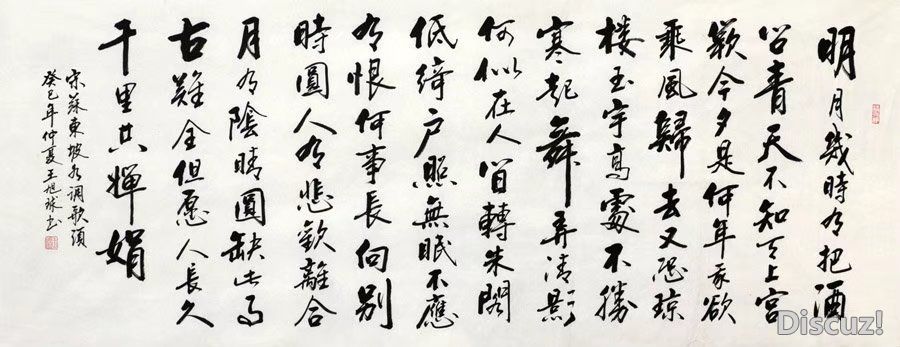 明月幾時有把酒
问青天不知天上宮
闕今夕是何年我欲
乘風歸去又恐琼
楼玉宇高處不勝
寒起舞弄清影
何似在人间轉朱閣
低綺户照無眠不應
有恨何事長向别
時圓人有悲歡離合
月有陰晴圓缺此事
古難全但愿人長久
千里共嬋娟
宋蘇東坡水调歌頭
癸巳年仲夏王旭书
Discuz!